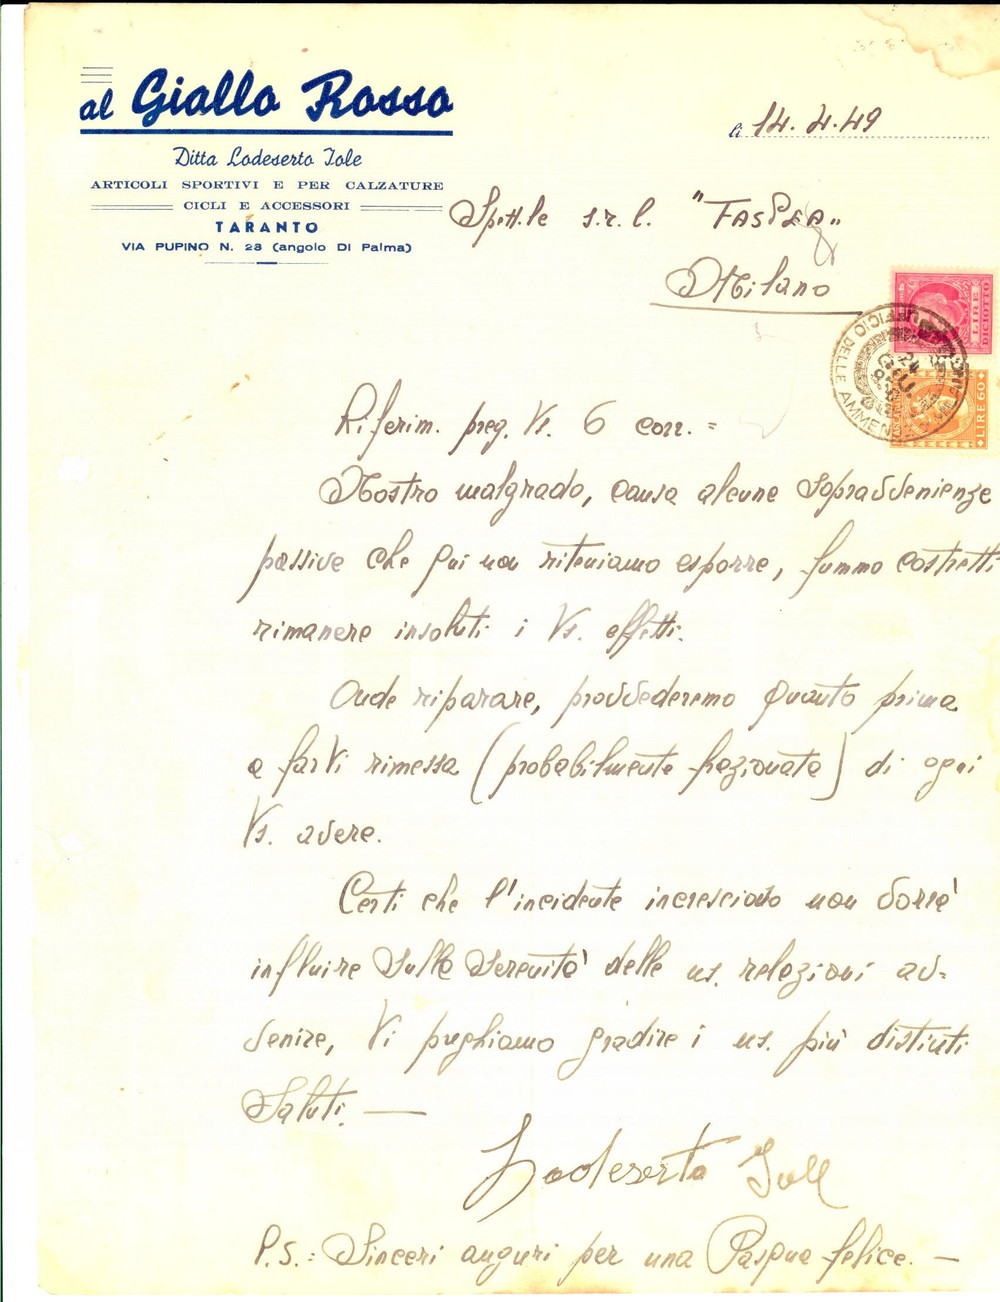 al Giallo Rosso
Ditta Lodeserto Iole
ARTICOLI SPORTIVI E PER CALZATURE
CICLI E ACCESSORI
TARANTO
VIA PUPINO N. 28 (angolo DI Palma)
li 14.4.49
Spett.le s.r.l. "FASPLA"
Milano
LIRE DICIOTTO
LIRE 60
UFFICIO DELLE AMMENDE
Riferim. preg. Vs. 6 corr. =
Nostro malgrado, causa alcune sopravvenienze
passive che qui non riteniamo esporre, fummo costretti
rimanere insoluti i Vs. effetti.
Onde riparare, provvederemo quanto prima
a farVi rimessa (probabilmente frazionata) di ogni
Vs. avere.
Certi che l'incidente increscioso non vorrà
influire sulla serenità delle ns. relazioni av=
venire, Vi preghiamo gradire i ns. più distinti
Saluti. —
Lodeserto Iole
P.S.: Sinceri auguri per una Pasqua felice. —